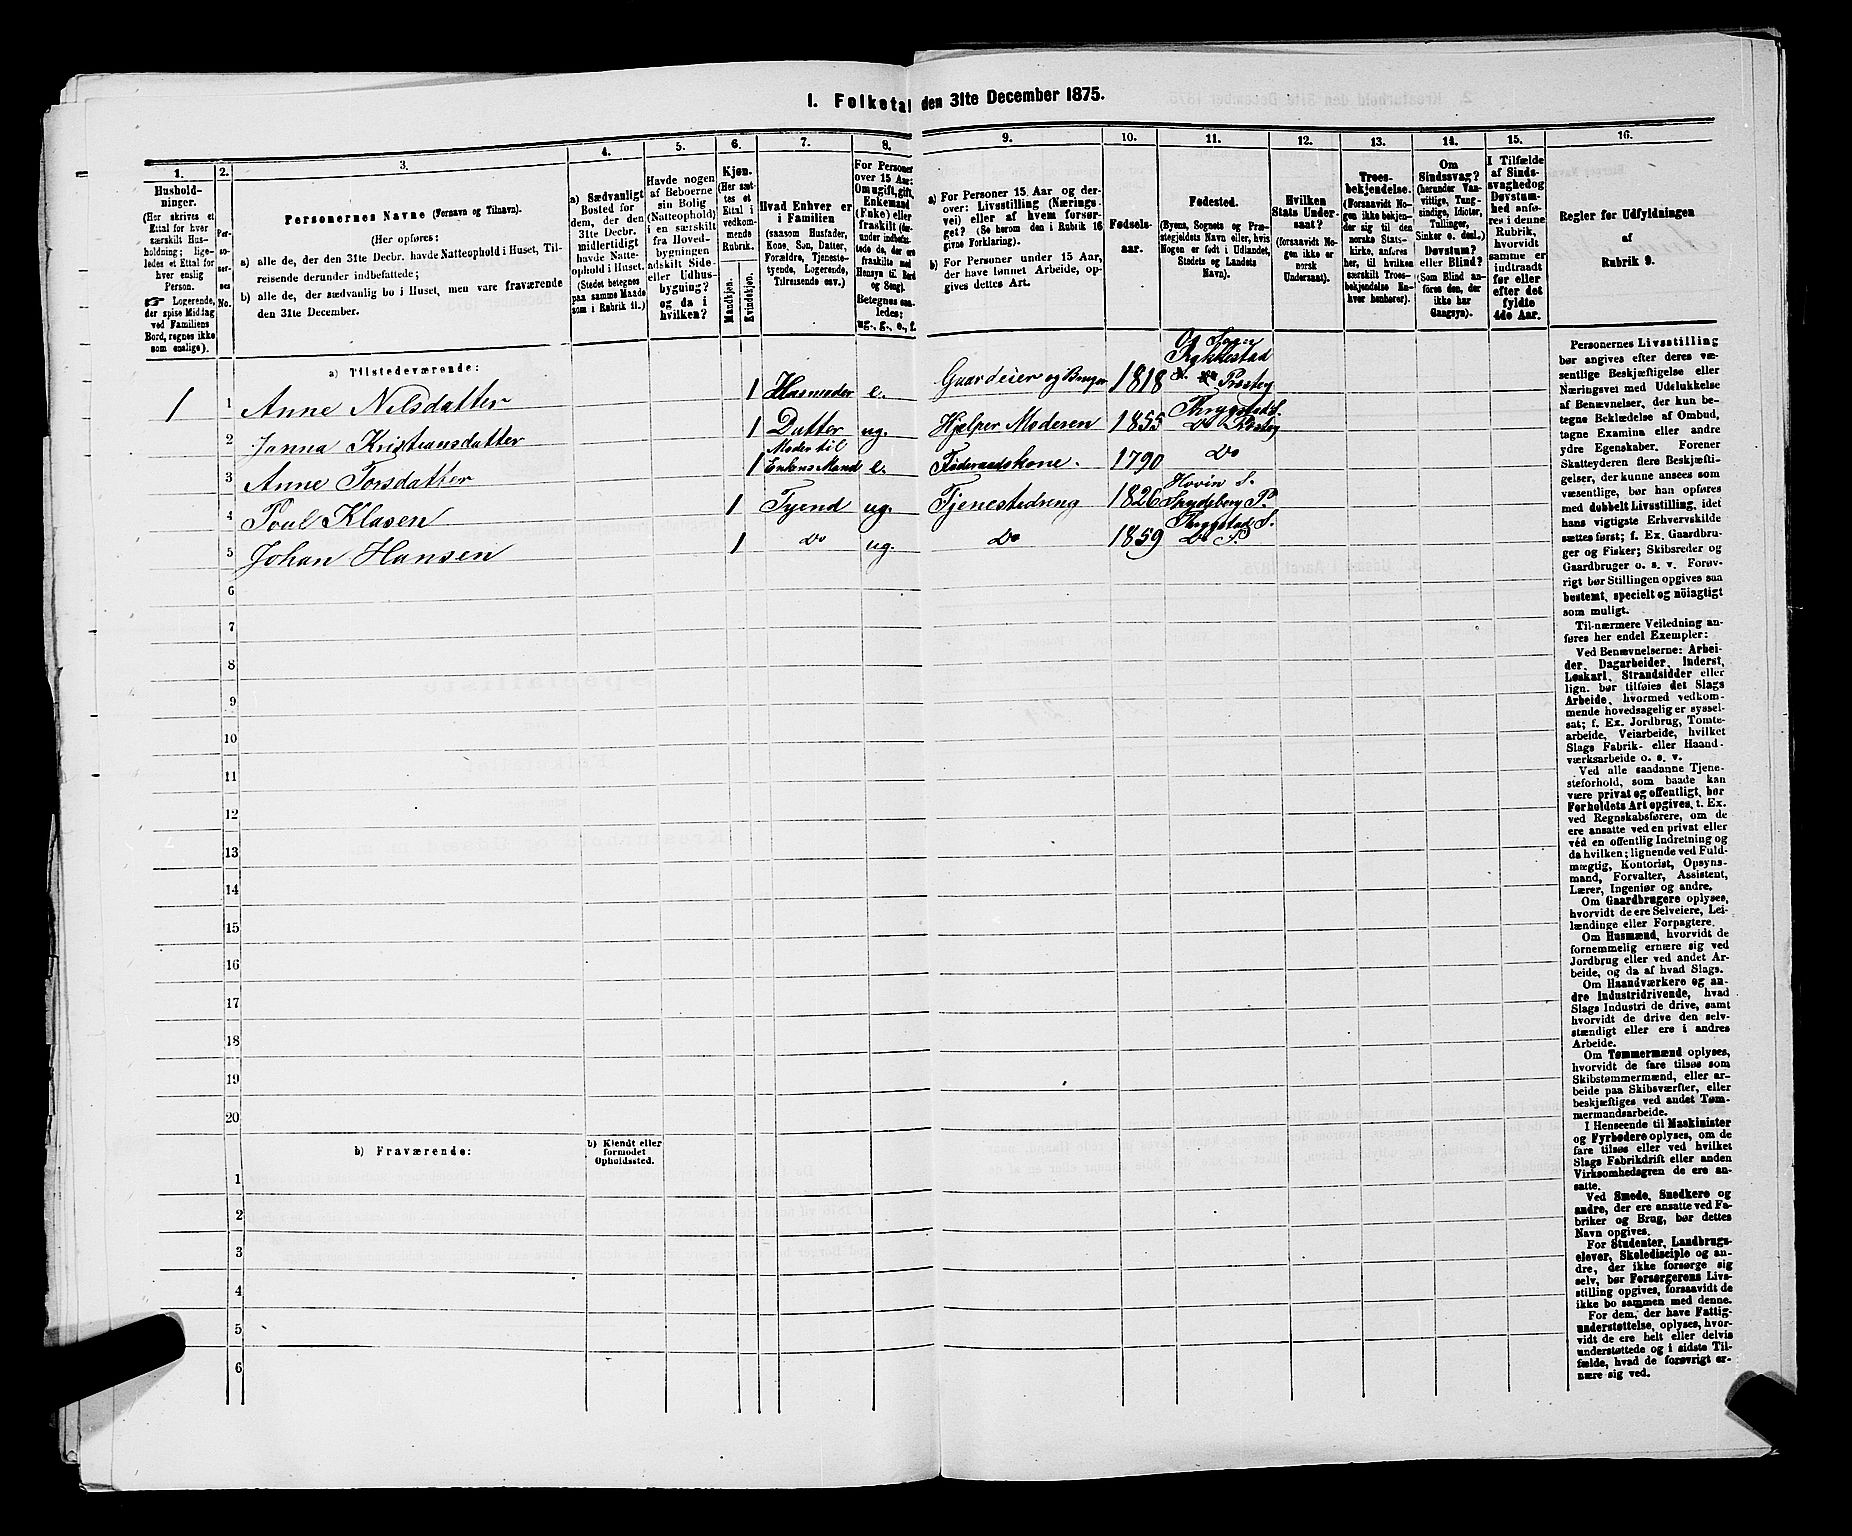 I. Folketal den 31te December 1875.
1.
2.
3.
4.
5.
6.
7.
8.
9.
10.
11.
12.
13.
14.
15.
16.
Hushold-
ninger.
(Her skrives et
Ettal for hver
særskilt Hus-
holdning; lige-
ledes et Ettal for
hver enslig
Person.
☞ Logerende,
der spise Middag
ved Familiens
Bord, regnes ikke
som enslige).
Per-
so-
ner-
nes
No.
Personernes Navne (Fornavn og Tilnavn).
(Her opføres:
a) alle de, der den 31te Decbr. havde Natteophold i Huset, Til-
reisende derunder indbefattede;
b) alle de, der sædvanlig bo i Huset, men vare fraværende
den 31te December.
a) Sædvanligt
Bosted for
dem, der den
31te Decbr.
midlertidigt
havde Natte-
ophold i Huset.
(Stedet betegnes
paa samme Maade
som i Rubrik 11.)
Havde nogen
af Beboerne
sin Bolig
(Natteophold)
i en særskilt
fra Hoved-
bygningen
adskilt Side-
eller Udhus-
bygning?
og da i
hvilken?
Kjøn.
(Her sæt-
tes et
Ettal i
vedkom-
mende
Rubrik.
Mandkjøn.
Kvindekjøn.
Hvad Enhver er
i Familien
(saasom Husfader,
Kone, Søn, Datter,
Forældre, Tjeneste-
tyende, Logerende,
Tilreisende osv.)
For Personer
over 15 Aar:
Om ugift, gift,
Enkemand
(Enke) eller
fraskilt (der-
under indbefat-
tede de, der ere
fraskilte med
Hensyn til Bord
og Seng).
Betegnes saa-
ledes:
ug., g., e., f.
a) For Personer 15 Aar og der-
over: Livsstilling (Nærings-
vei) eller af hvem forsør-
get? (Se herom den i Rubrik 16
givne Forklaring).
b) For Personer under 15 Aar,
der have lønnet Arbeide, op-
gives dettes Art.
Fødsels-
aar.
Fødested.
(Byens, Sognets og Præ-
stegjeldets Navn eller, hvis
Nogen er født i Udlandet,
Stedets og Landets
Navn).
Hvilken
Stats Under-
saat?
(forsaavidt No-
gen ikke er
norsk
Undersaat).
Troes-
bekjendelse.
(Forsaavidt No-
gen ikke bekjen-
der sig til den
norske Stats-
kirke, anføres
her, til hvilken
særskilt Troes-
bekjendelse En-
hver henhører).
Om
Sindssvag?
(herunder Van-
vittige, Tung-
sindige, Idioter,
Tullinger,
Sinker o. desl.)
Døvstum?
eller Blind?
(Som Blind an-
føres den, der
ikke har
Gangsyn).
I Tilfælde
af Sinds-
svaghed og
Døvstum-
hed anfø-
res i denne
Rubrik,
hvorvidt
samme er
indtraadt
før eller
efter det
fyldte
4de Aar.
Regler for Udfyldningen
af
Rubrik 9.
a) Tilstedeværende:
1 1 Anne Nilsdatter 1 Husmoder e. Gaardeier og Bruger 1818 Rakkestad S. Præsteg
2 Janna Kristiansdatter 1 Datter ug. Hjælper Moderen 1855 Trygstad S. Do Præsteg
3 Anne Torsdatter 1 Moder til Enkens Mand e. Føderaadskone. 1790 Do
4 Poul Klasen 1 Tyend ug. Tjenestedreng 1826 Hovin S. Spydeberg P.
5 Johan Hansen 1 Do ug. Do 1859 Trygstad S. Do P.
6
7
8
9
10
11
12
13
14
15
16
17
18
19
20
b) Fraværende:
b) Kjendt eller
formodet
Opholdssted.
1
2
3
4
5
6
Personernes Livsstilling
bør angives efter deres væ-
sentlige Beskjæftigelse eller
Næringsvei med Udelukkelse
af Benævnelser, der kun be-
tegne Beklædelse af Ombud,
tagne Examina eller andre
ydre Egenskaber. Forener
Skatteyderen flere Beskjæfti-
gelser, der kunne ansees som
væsentlige, bør han opføres
med dobbelt Livsstilling, idet
hans vigtigste Erhvervskilde
sættes først; f. Ex. Gaardbru-
ger og Fisker; Skibsreder og
Gaardbruger o. s. v. Forøv-
rigt bør Stillingen opgives saa
bestemt, specielt og nöiagtigt
som muligt.
Til nærmere Veiledning an-
føres her endel Exempler:
Ved Benævnelserne: Arbei-
der, Dagarbeider, Inderst,
Løskarl, Strandsidder eller
lign. bør tilføies det Slags
Arbeide, hvormed vedkom-
mende hovedsagelig er syssel-
sat; f. Ex. Jordbrug, Tomte-
arbeide, Veiarbeide, hvilket
Slags Fabrik- eller Haand-
værksarbeide o. s. v.
Ved alle saadanne Tjene-
steforhold, som baade kan
være privat og offentligt, bør
Forholdets Art opgives, t. Ex.
ved Regnskabsførere, om de
ere ansatte ved en privat eller
ved en offentlig Indretning og
da hvilken; lignende ved Fuld-
mægtig, Kontorist, Opsyns-
mand, Forvalter, Assistent,
Lærer, Ingeniør og andre.
Om Gaardbrugere oplyses,
hvorvidt de ere Selveiere, Lei-
lændinge eller Forpagtere.
Om Husmænd, hvorvidt de
fornemmelig ernære sig ved
Jordbrug eller ved andet Ar-
beide, og da af hvad Slags.
Om Haandværkere og an-
dre Industridrivende, hvad
Slags Industri de drive, samt
hvorvidt de drive den selv-
stændigt eller ere i andres
Arbeide.
Om Tømmermænd oplyses,
hvorvidt de fare tilsøs som
Skibstømmermænd, eller ar-
beide paa Skibsværfter, eller
beskjæftiges ved andet Tøm-
mermandsarbeide.
I Henseende til Maskinister
og Fyrbødere oplyses, om de
fare tilsøs eller ved hvilket
Slags Fabrikdrift eller anden
Virksomhedsgren de ere an-
satte.
Ved Smede, Snedkere og
andre, der ere ansatte ved Fa-
briker og Brug, bør dettes
Navn opgives.
For Studenter, Landbrugs-
elever, Skoledisciple og an-
dre, der ikke forsørge sig
selv, bør Forsørgerens Livs-
stilling opgives, forsaavidt de
ikke bo sammen med denne.
For dem, der have Fattig-
understøttelse, oplyses, hvor-
vidt de ere helt eller delvis
understøttede og i sidste Til-
fælde, hvad de forøvrigt er-
nære sig ved.